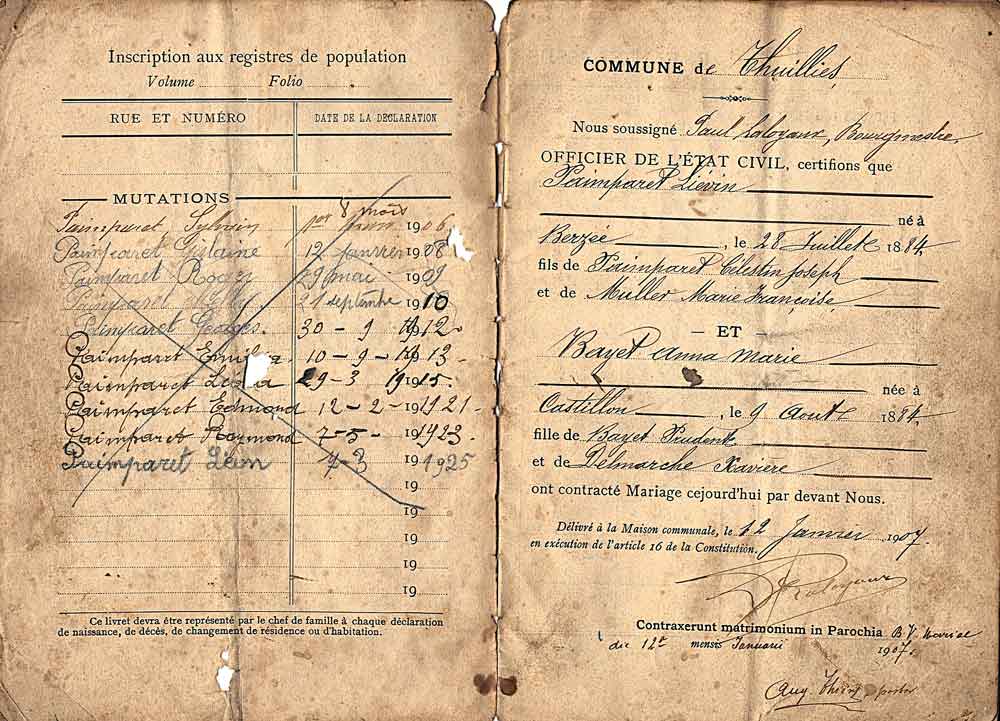 Inscription aux registres de population
Volume Folio
RUE ET NUMÉRO DATE DE LA DÉCLARATION
MUTATIONS
Paimparet Sylvain 8 mars 1906
Paimparet Ghislaine 12 janvier 1908
Paimparet Roger 29 mai 1909
Paimparet Nelly 21 septembre 1910
Paimparet Georges. 30 - 9 1912
Paimparet 10 - 9 - 1913
Paimparet 29 - 3 1915.
Paimparet Edmond 12 - 2 - 1921.
Paimparet Raymond 7 - 5 - 1923.
Paimparet Léon 7 - 3 1925
19
19
19
19
19
Ce livret devra être représenté par le chef de famille à chaque déclaration
de naissance, de décès, de changement de résidence ou d'habitation.
COMMUNE de Thuillies
Nous soussigné Paul Laloyaux, Bourgmestre,
OFFICIER DE L'ÉTAT CIVIL, certifions que
Paimparet Liévin
né à
Berzée, le 28 Juillet 1884,
fils de Paimparet Célestin Joseph
et de Muller Marie Françoise,
— ET —
Bayet Anna Marie
née à
Castillon, le 9 Août 1884,
fille de Bayet Prudent
et de Delmarche Xavière
ont contracté Mariage cejourd'hui par devant Nous.
Délivré à la Maison communale, le 12 Janvier 1907.
en exécution de l'article 16 de la Constitution.
Contraxerunt matrimonium in Parochia B. V. Mariae
die 12a mensis Januarii 1907.
Aug.